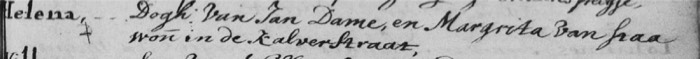 Helena, Dogh: Van Jan Dame, en Margrita Van staa
woñ in de Kalverstraat,